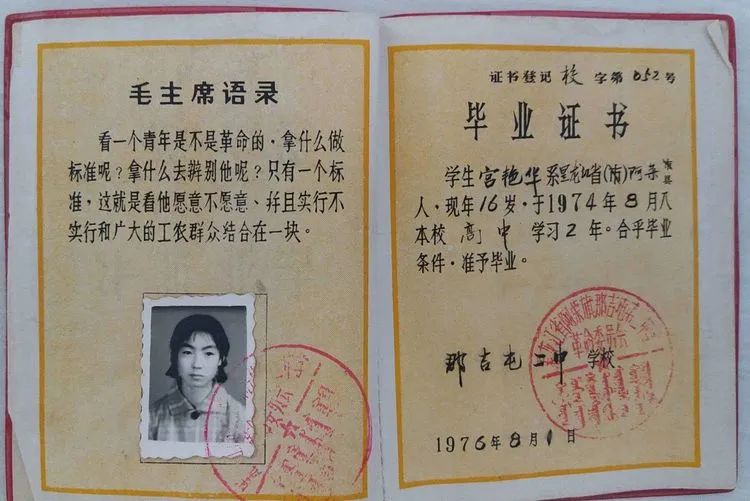 毛主席语录
看一个青年是不是革命的,拿什么做
标准呢?拿什么去辨别他呢?只有一个标
准,这就是看他愿意不愿意、并且实行不
实行和广大的工农群众结合在一块。
证书登记 校 字第 052 号
毕业证书
学生宫艳华系黑龙江省(市)阿荣旗县
人,现年16岁,于1974年8月入
本校 高中 学习2年。合乎毕业
条件,准予毕业。
那吉屯二中 学校
革命委员会
1976年8月1日